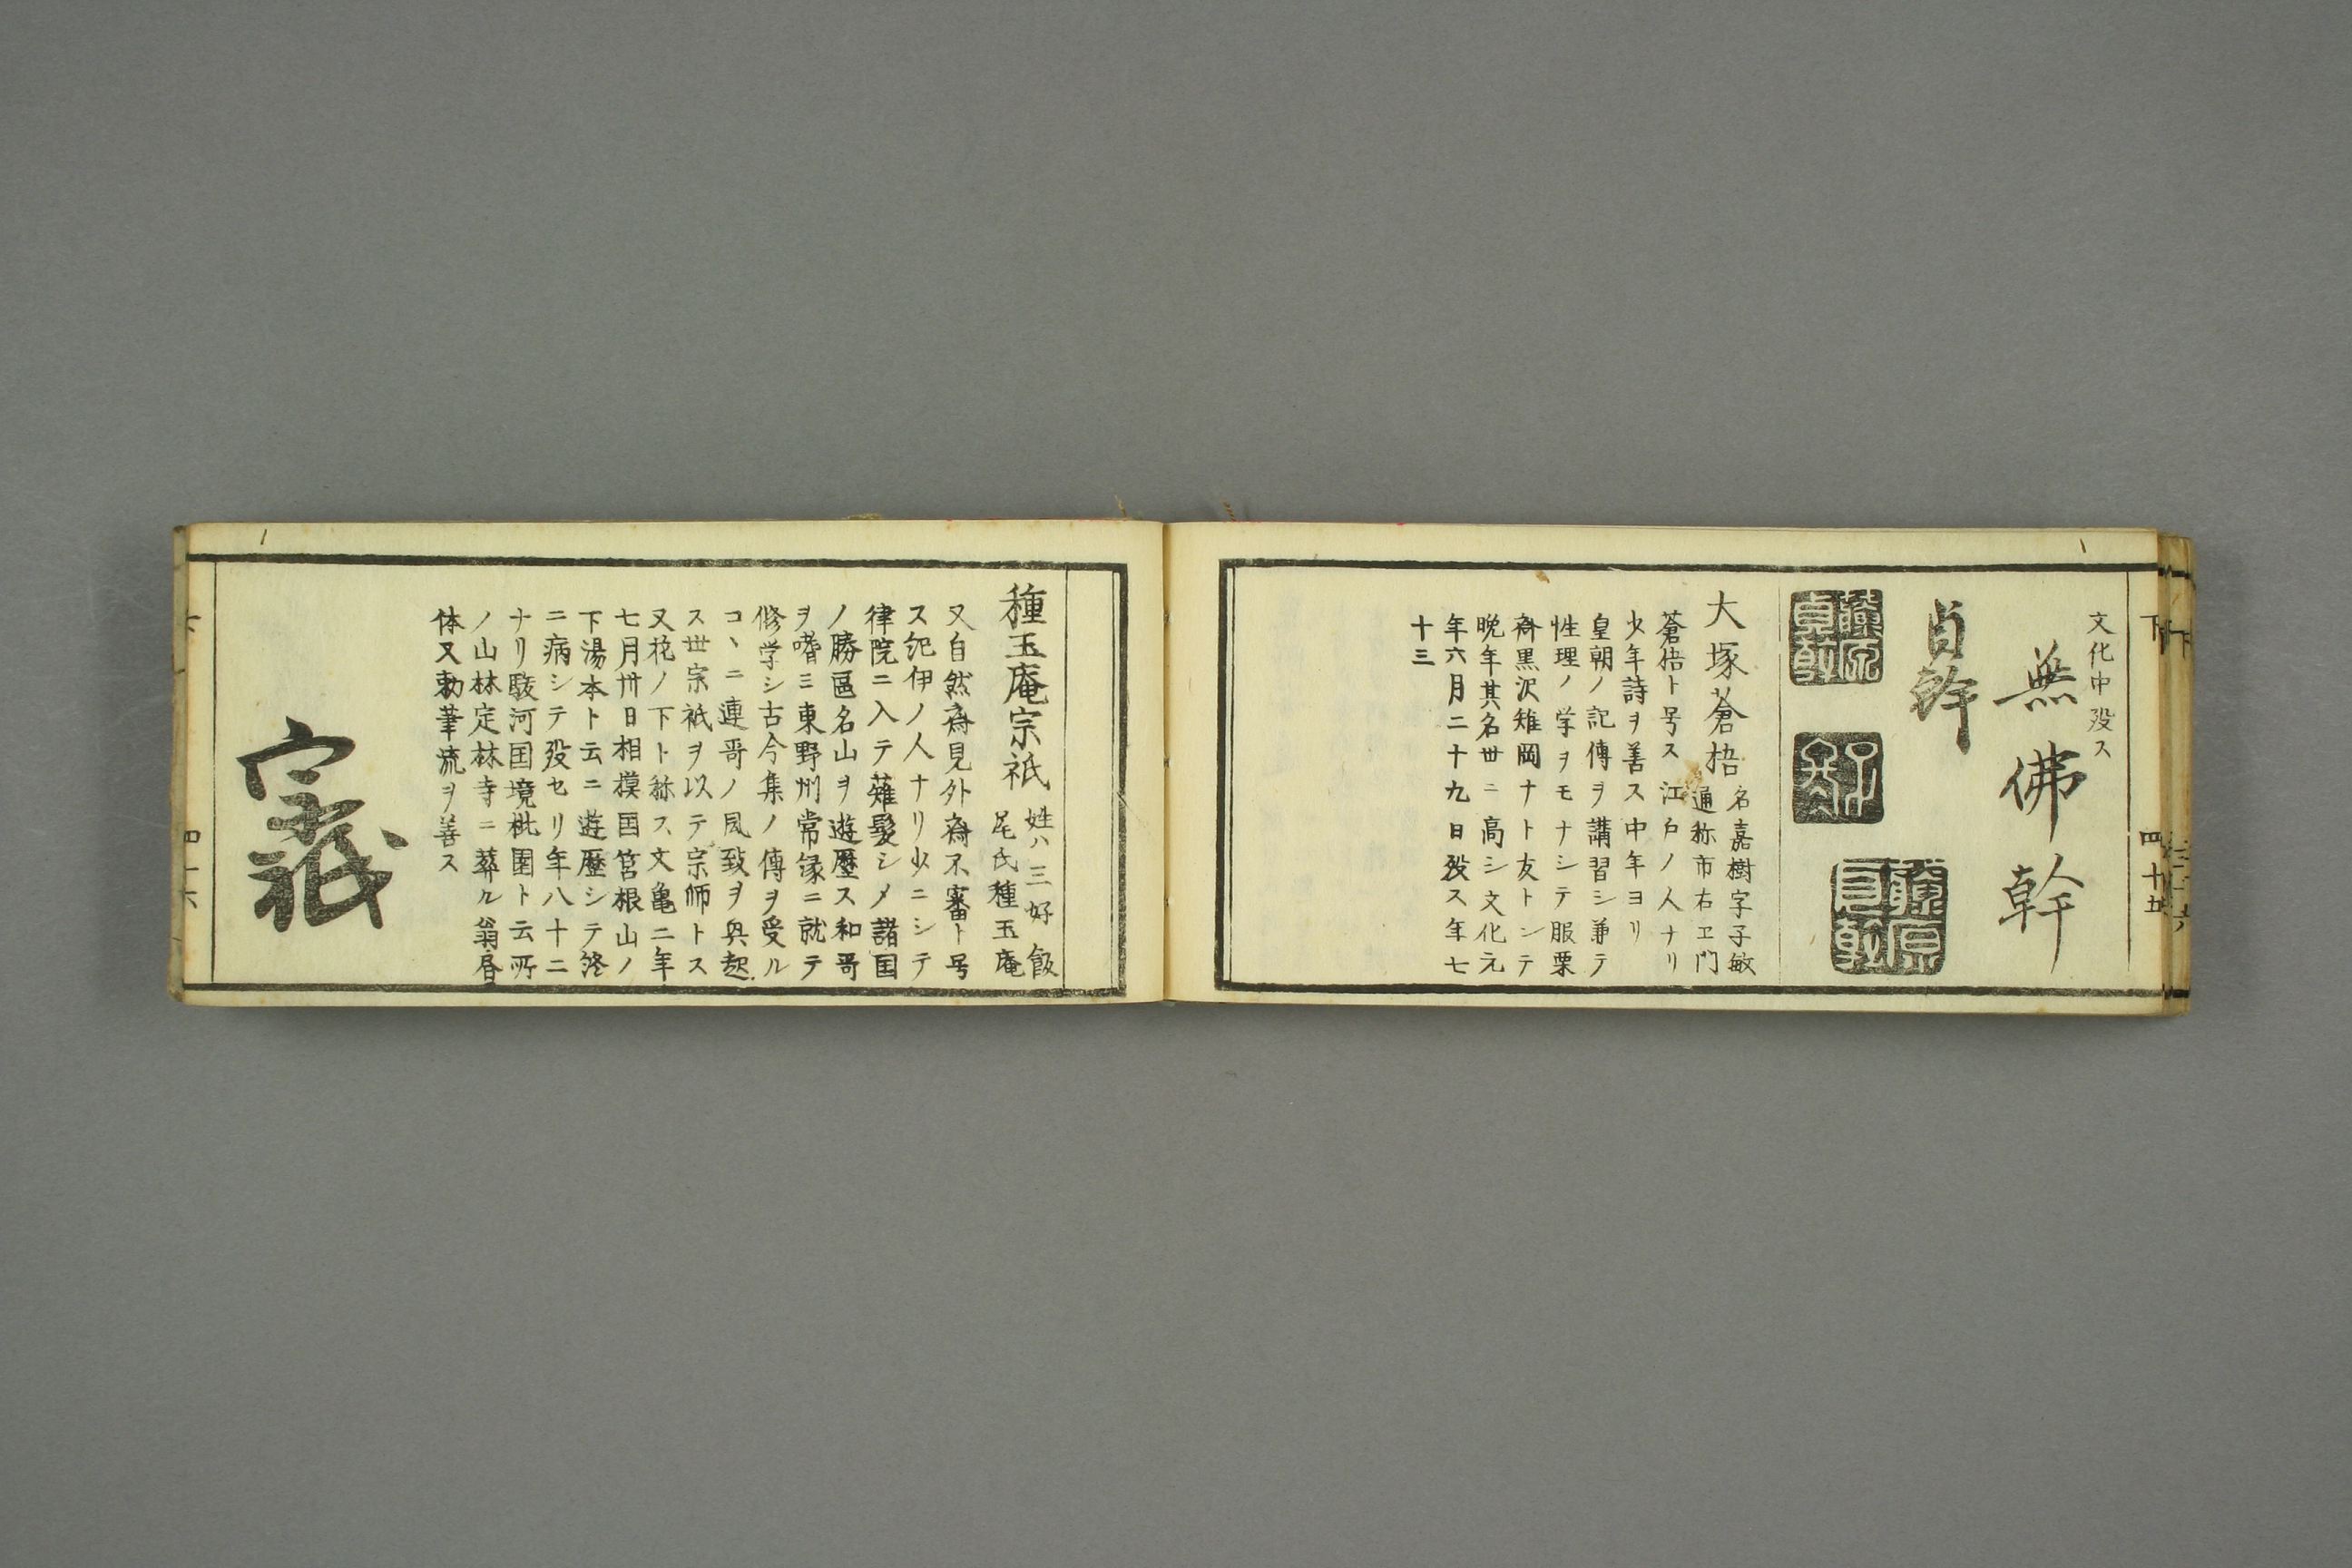 下
四十五
文化中歿ス
無佛幹
貞幹
藤原貞幹
藤原貞幹
大塚蒼梧
名嘉樹字子敏
通称市右ヱ門
蒼梧ト号ス江戸ノ人ナリ
少年詩ヲ善ス中年ヨリ
皇朝ノ記傳ヲ講習シ兼テ
性理ノ学ヲモナシテ服栗
斎黒沢雉岡ナト友トシテ
晩年其名世ニ高シ文化元
年六月二十九日歿ス年七
十三
種玉庵宗祇
姓ハ三好飯
尾氏種玉庵
又自然斎見外斎不審ト号
ス紀伊ノ人ナリ少ニシテ
律院ニ入テ薙髪シメ諸国
ノ勝區名山ヲ遊歴ス和哥
ヲ嗜ミ東野州常縁ニ就テ
修学シ古今集ノ傳ヲ受ル
コヽニ連哥ノ風致ヲ興起
ス世宗祇ヲ以テ宗師トス
又花ノ下ト称ス文亀二年
七月卅日相摸国筥根山ノ
下湯本ト云ニ遊歴シテ終
ニ病シテ歿セリ年八十二
ナリ駿河国境桃園ト云所
ノ山林定林寺ニ葬ル翁唇
体又勅筆流ヲ善ス
宗祇
下
四十六